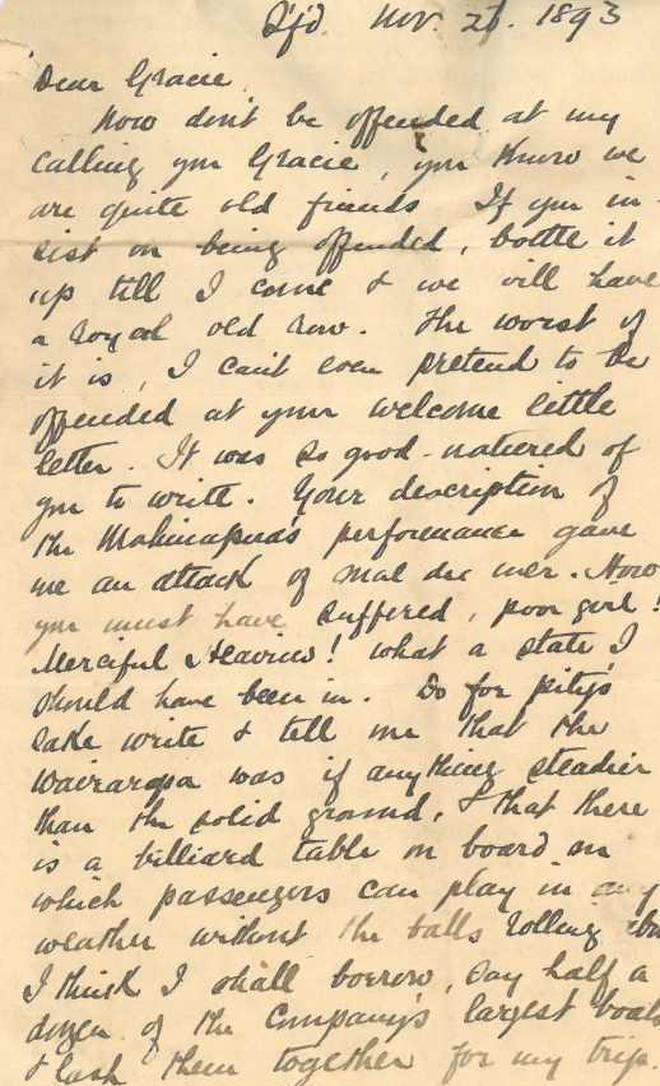 Nov. 1893
Dear Gracie,
Now don't be offended at my
calling you Gracie, you know we
are quite old friends If you in-
sist on being offended, bottle it
up till I come & we will have
a royal old row. The worst of
it is, I can't even pretend to be
offended at your welcome little
letter. It was so good-natured of
you to write. Your description of
the Mahinapua's performance gave
me an attack of mal de mer. How
you must have suffered, poor girl!
Merciful Heavens! what a state I
should have been in. Do for pity's
sake write & tell me that the
Wairarapa was if anything steadier
than the solid ground, & that there
is a billiard table on board on
which passengers can play in any
weather without the balls rolling
I think I shall borrow, say half a
dozen of the Company's largest boats
& lash them together for my trip.